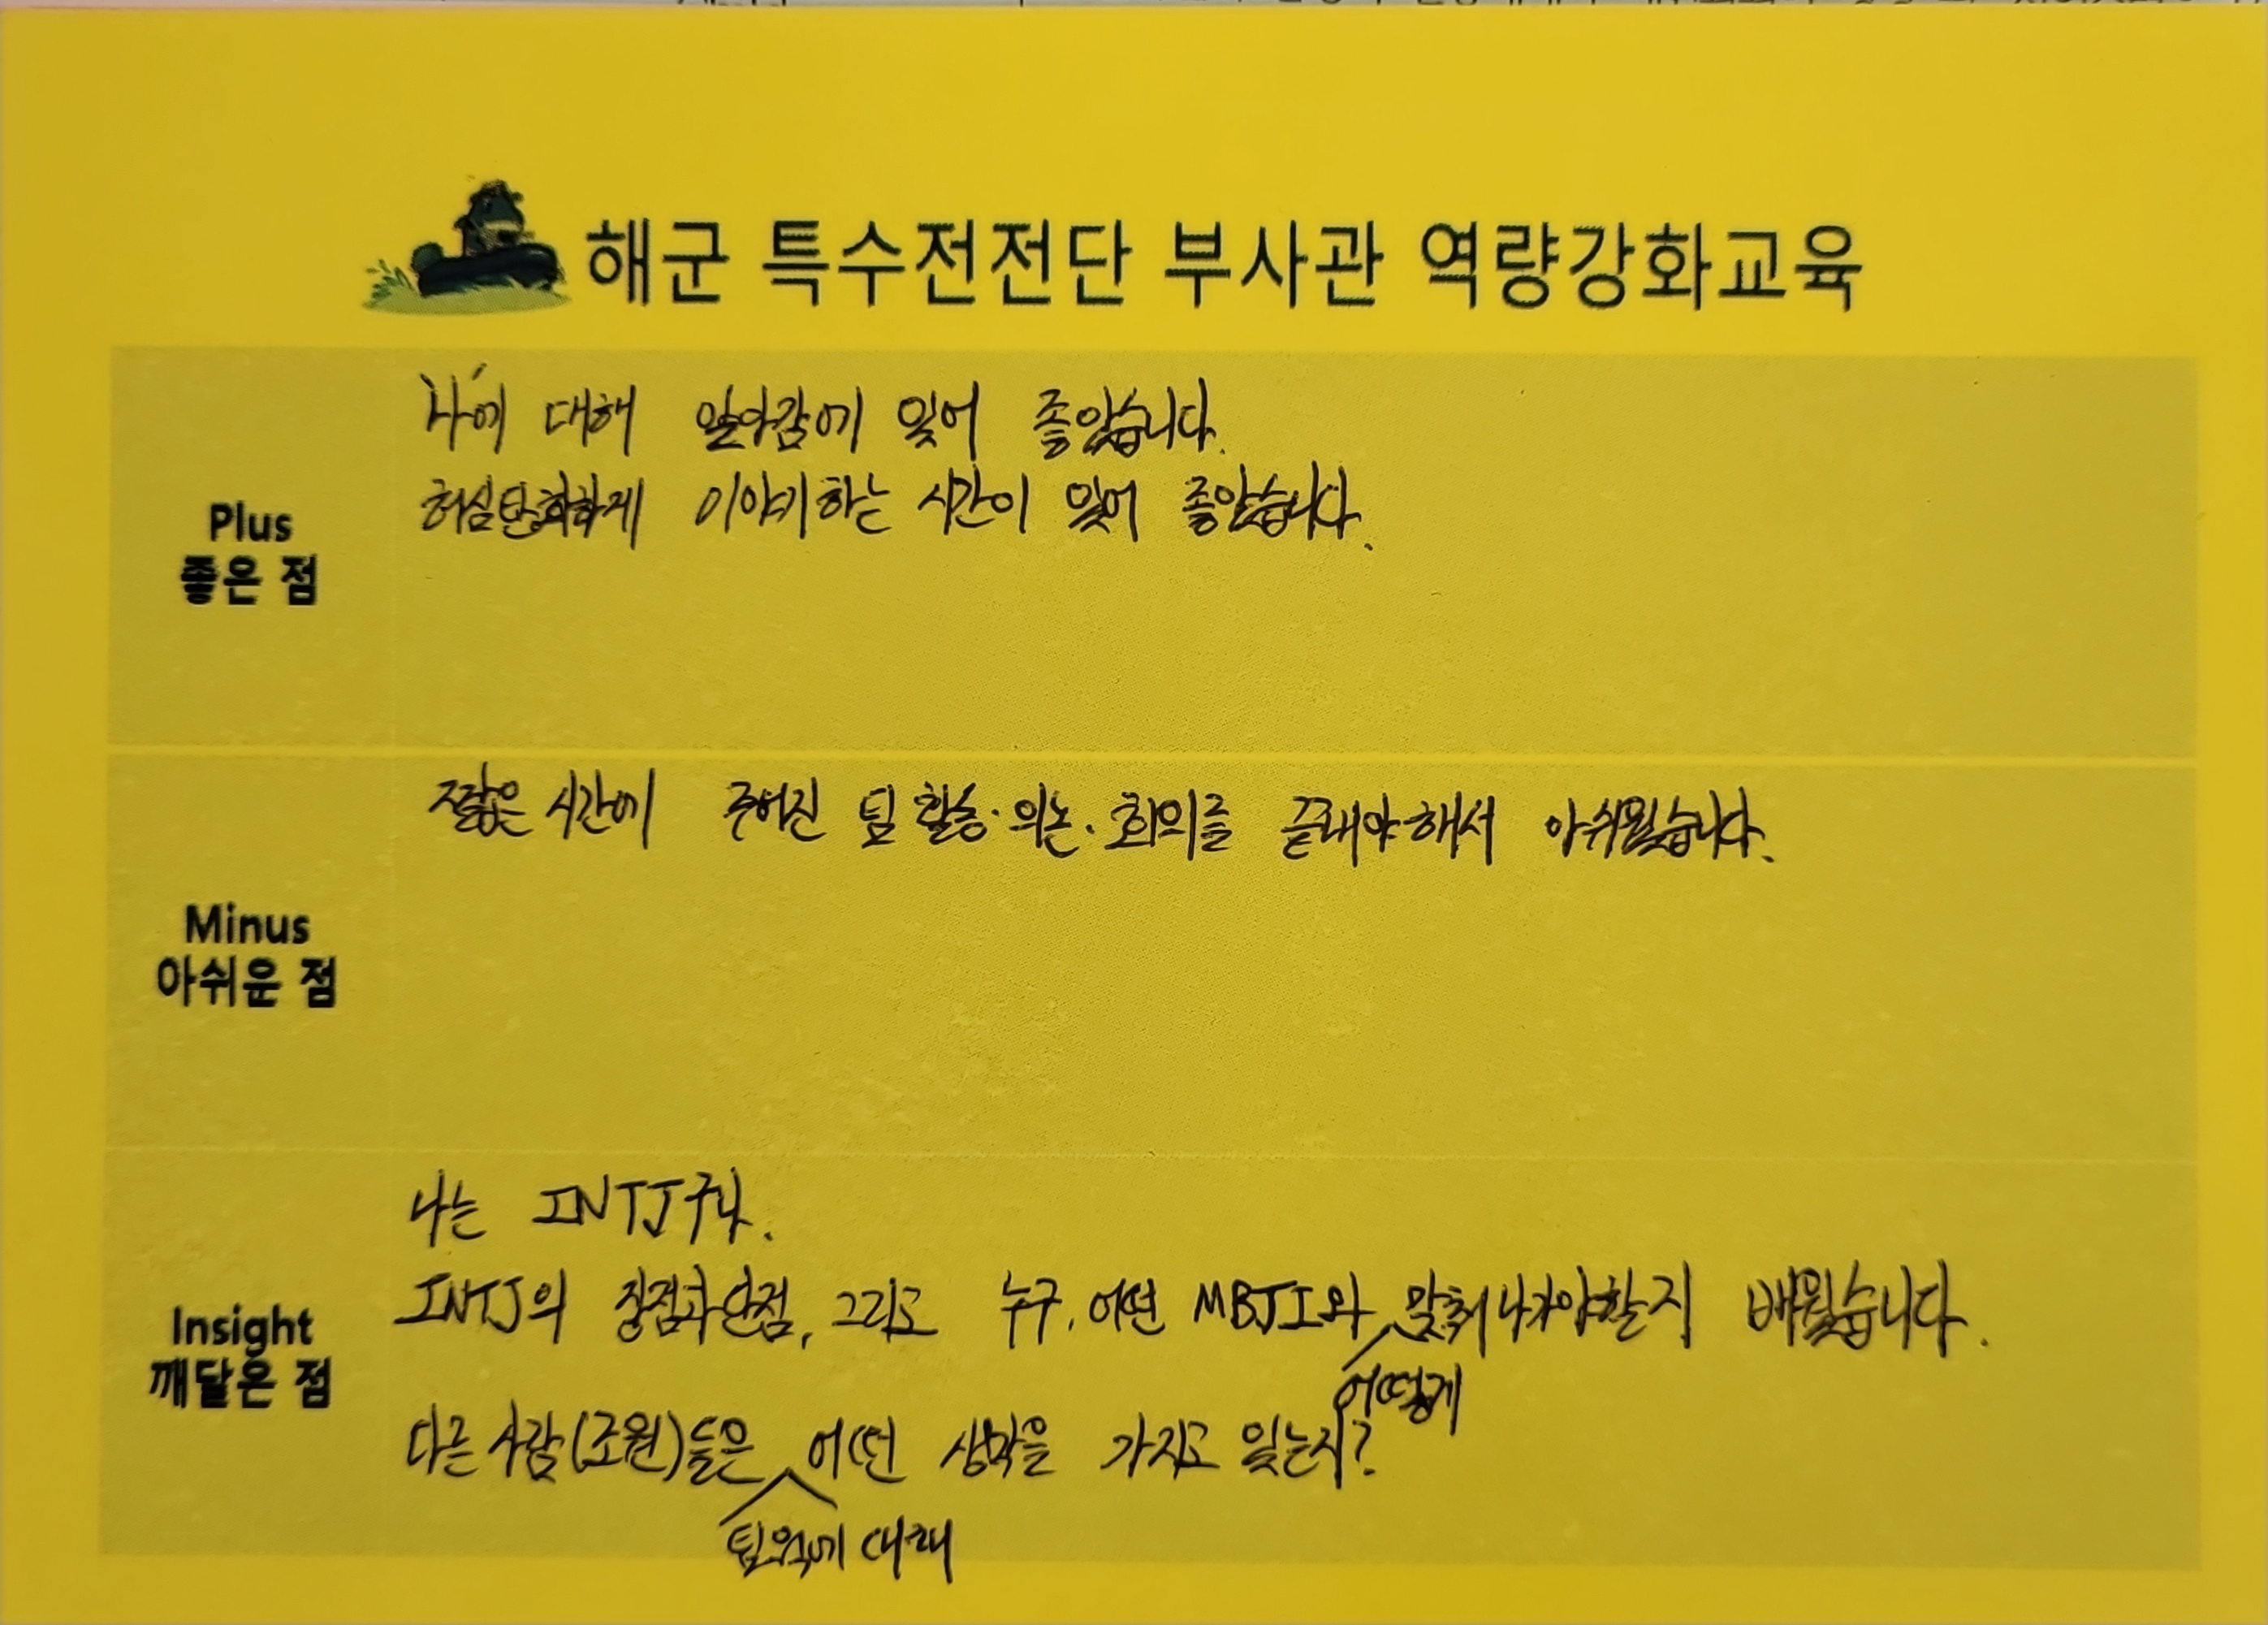 해군 특수전전단 부사관 역량강화교육
Plus
좋은 점
나에 대해 알아감에 있어 좋았습니다.
허심탄회하게 이야기하는 시간이 있어 좋았습니다.
Minus
아쉬운 점
짧은 시간에 주어진 팀 활동·의논·회의를 끝내야해서 아쉬웠습니다.
Insight
깨달은 점
나는 INTJ구나.
INTJ의 장점과 단점, 그리고 누구, 어떤 MBTI와 맞춰나가야할지 배웠습니다.
어떻게
다른 사람(조원)들은 어떤 생각을 가지고 있는지?
팀워크에 대해